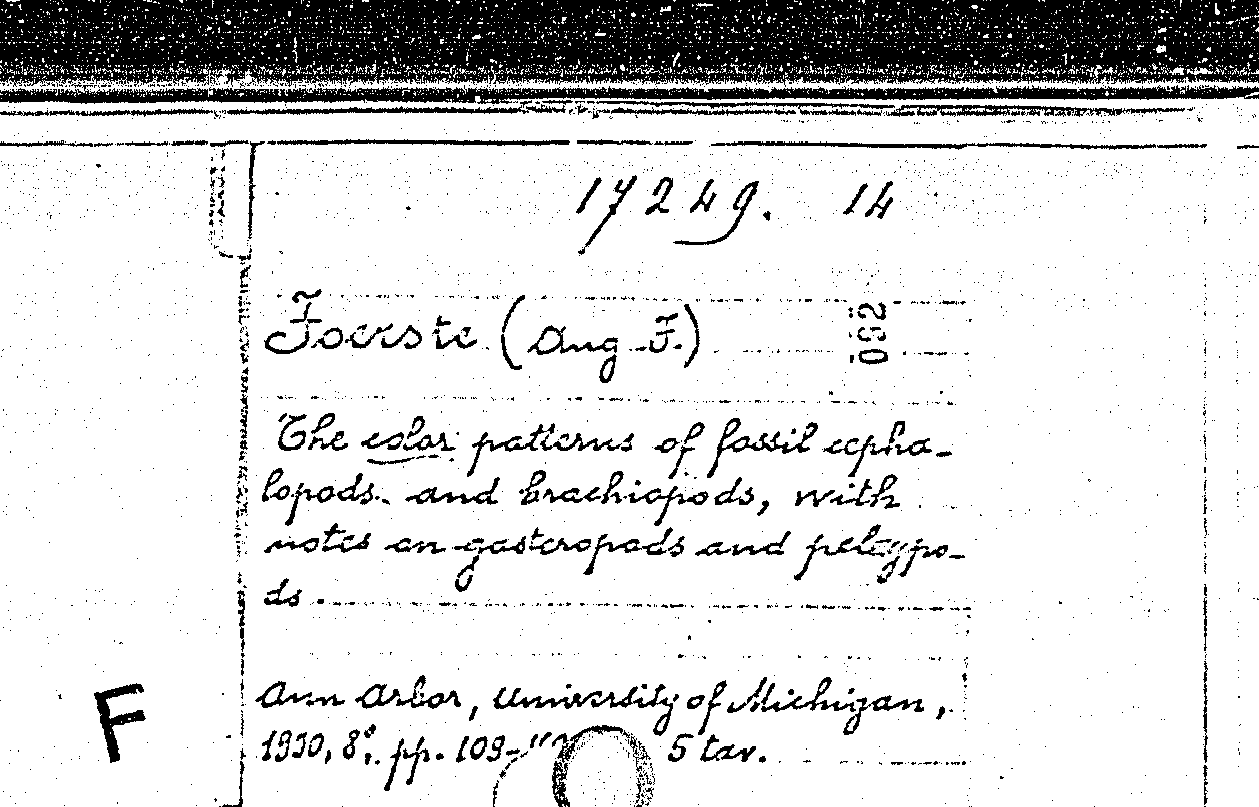 17249. 14
Foerste (Aug. F.)
092
The color patterns of fossil cepha-
lopods. and brachiopods, with
notes on gasteropods and pelcypo-
ds.
Ann Arbor, University of Michigan,
F
1930, 8°. pp. 109- 5 tav.